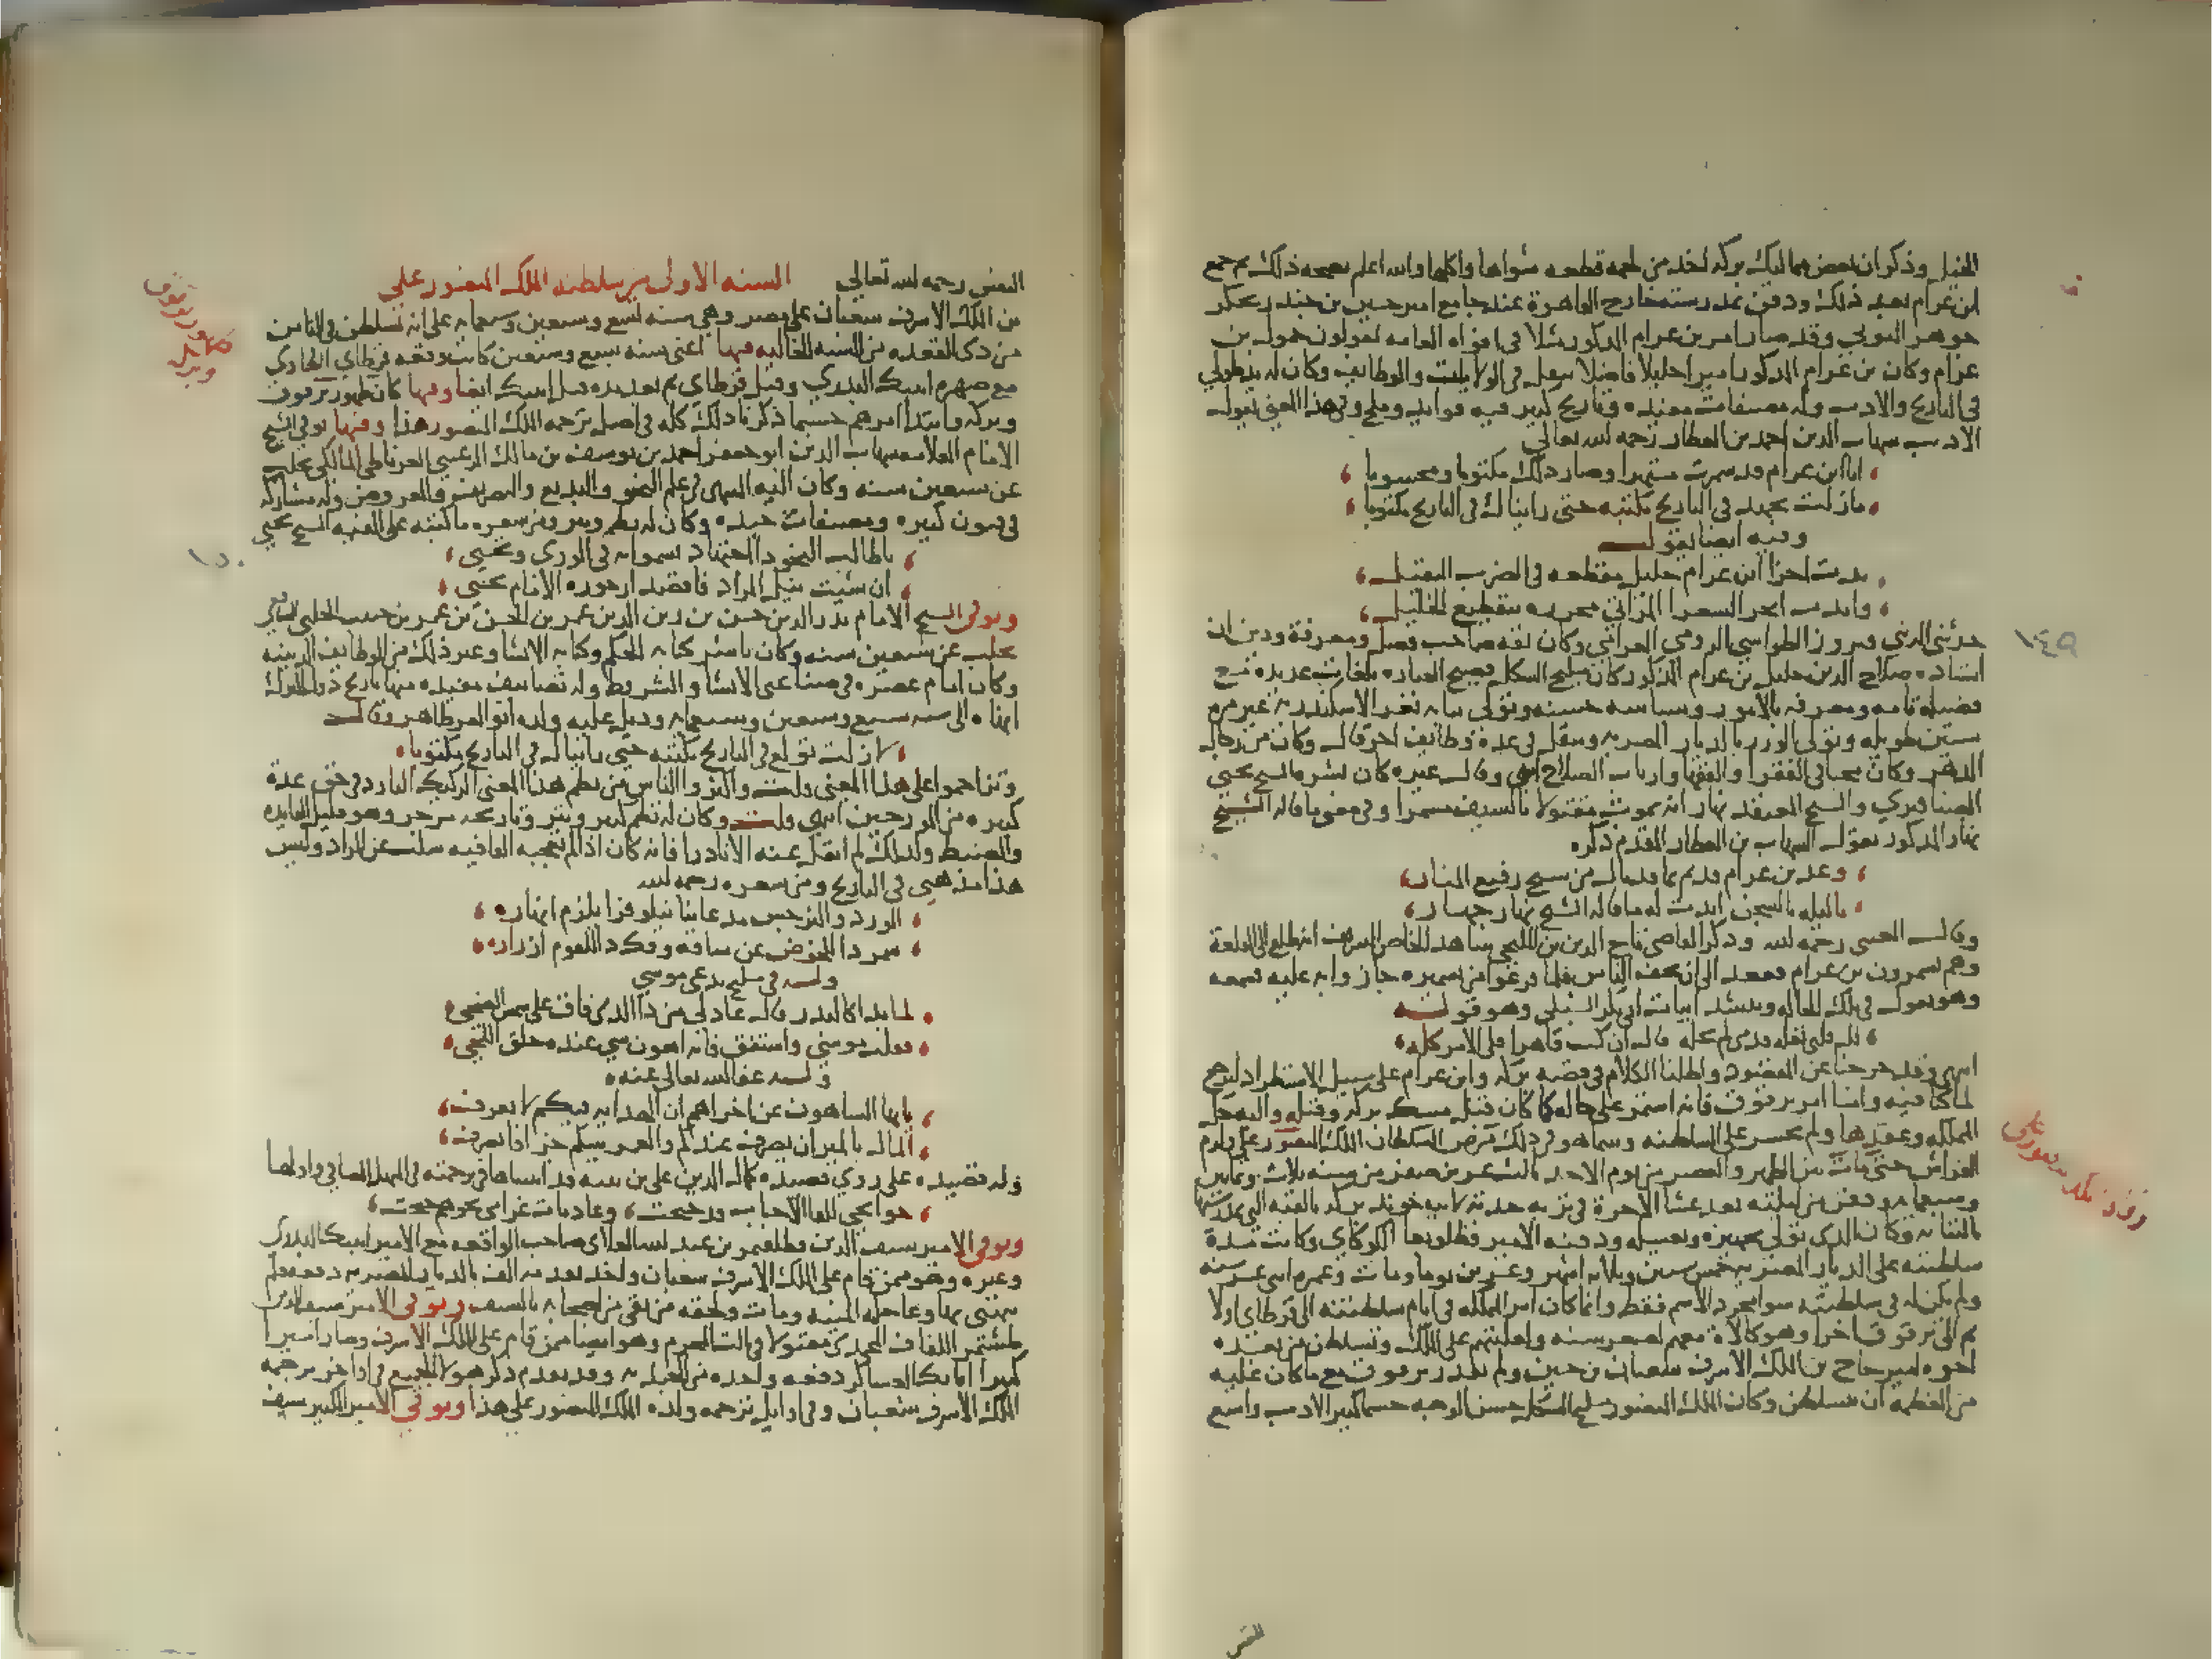 الخيل وذكر ان بعض مماليك بركه اخذ من لحمه قطعه شواها واكلها والله اعلم بصحه ذلك ثم جمع
ابن عرام بعد ذلك ودفن بمدرسته خارج القاهرة عند جامع امير حسين بن جندر بحكر
جوهر النوبي وقد صار امر بن عرام المذكور مثلا في افواه العامه يقولون خمول بن
عرام وكان بن عرام المذكور امير اجليلا فاضلا تنقل في الولايات والوظايف وكان له يد طولي
في التاريخ والادب وله مصنفات مفيده وتاريخ كبير فيه فوايد وملح وفي هذا المعني يقول
الاديب شهاب الدين احمد بن العطار رحمه الله تعالي
ايا ابن عرام قد سمرت مشتهرا وصار ذلك مكتوبا ومحسوبا
مازلت تجهد في التاريخ تكتبه حتى رايناك في التاريخ مكتوبا
وفيه ايضا يقول
بدت اجزا ابن عرام خليل مقطعه في الضرب الثقيل
وابدت ابحر الشعر المراثي محرره بتقطيع الخليل
حدثني الزيني فيروز الطواشي الرومي العرامي وكان ثقه صاحب فضل ومعرفة ودين ان
استاده صلاح الدين خليل بن عرام المذكور كان مليح الشكل فصيح العباره بلغات عديده مع
فضيله تامه ومعرفه بالامور وسياسه حسنه وتولى نيابه ثغر الاسكندريه غير مره
سنين طويله وتولى الوزر بالديار المصريه وتنقل في عدة وظايف اخر قال وكان من رجال
الدهر وكان محبا في الفقرا والفقها وارباب الصلاح انتهى وقال غيره كان بشره الشيخ يحيى
الصنافيري والشيخ المعتقد نهار انه يموت مقتولا بالسيف مسمرا وفي معنى ما قاله الشيخ
نهار المذكور يقول الشهاب بن العطار المقدم ذكره
وعد بن عرام قديم بما قد نال من شيخ رفيع المنار
باليله بالسجن ابدت له ما قاله الشيخ نهار جهار
وقال العيني رحمه الله وذكر القاضي تاج الدين بن المليجي شاهد الخاص الشريف انه طلع الى القلعة
وهم يسمرون بن عرام فقعد الى ان يخف الناس فلما فرغوا من تسميره جاز وابه عليه فسمعه
وهو يقول في تلك الحاله وينشد ابيات ابي بكر الشبلي وهو قوله
لك قلبي تعله فدمي لم تحله قال ان كنت قاهرا فلي الامر كله
انتهى وقد خرجنا عن المقصود واطلنا الكلام في قصه بركه وابن عرام على سبيل الاستطراد لنرجع
لما كنا فيه واما امر برقوق فانه استمر على حاله كما كان قبل مسك بركه وقتله واليه حل
المملكه وعقدها ولم يجسر على السلطنه وبينما هو في ذلك مرض السلطان الملك المنصور علي ولزم
الفراش حتى مات بين الظهر والعصر من يوم الاحد ثالث عشرين صفر من سنه ثلاث وثمانين
وسبعمايه ودفن من ليلته بعد عشا الاخرة في تربه جدته لابيه خوند بركه بالقبه التي بمدرستها
بالتبانه وكان الذي تولى تجهيزه وتغسيله ودفنه الامير قطلوبغا الكوكاي وكانت مدة
سلطنته على الديار المصريه خمس سنين وثلاثه اشهر وعشرين يوما ومات وعمره اثني عشر سنه
ولم يكن له في سلطنته سوا مجرد الاسم فقط وانما كان امر المملكه في ايام سلطنته الى قرطاي اولا
ثم الى برقوق اخرا وهو كالالة معهم لصغر سنه ولغلبتهم على الملك وتسلطن من بعده
اخوه امير حاج بن الملك الاشرف شعبان بن حسين ولم يقدر برقوق مع ما كان عليه
من العظمه ان يتسلطن وكان الملك المنصور مليح الشكل حسن الوجه حشما كثير الادب واسع
١٤٩
النفس
النفس رحمه الله تعالي السنه الاولى من سلطنه الملك المنصور علي
بن الملك الاشرف شعبان على مصر وهي سنه تسع وسبعين وسبعمايه على انه تسلطن في الثامن
من ذي القعده من السنه الخاليه فيها اعني سنه تسع وسبعين كانت وقعه قرطاي الطازي
مع صهره ايبك البدري وقتل قرطاي ثم بعد مده قتل ايبك ايضا وفيها كان ظهور برقوق
وبركه وابتدا امرهم حسبما ذكرنا ذلك كله في اصل ترجمه الملك المنصور هذا وفيها توفي الشيخ
الامام العلامه شهاب الدين ابو جعفر احمد بن يوسف بن مالك الرعيني الغرناطي المالكي بحلب
عن سبعين سنه وكان اليه المنتهى في علم النحو والبديع والتصريف والعروض وله مشاركه
في فنون كثيره ومصنفات جيده وكان له نظم ونثر ومن شعره ما كتبه على الفيه الشيخ يحيي
يا طالب النحو ذا اجتهاد تسموا به في الورى وتحيي
ان شئت نيل المراد فاقصد ارجوزه الامام يحيي
وتوفي الشيخ الامام بدر الدين حسن بن زين الدين عمر بن الحسن بن عمر بن حبيب الحلبي الشافعي
بحلب عن سبعين سنه وكان باشر كتابه الحكم وكتابه الانشا وغير ذلك من الوظايف الدينيه
وكان امام عصره في صناعتي الانشا والشروط وله تصانيف مفيده منها تاريخ دوله الترك
انهاه الى سنه سبع وسبعين وسبعمايه وذيل عليه ولده ابو العز طاهر وقال
لازلت تولع في التاريخ تكتبه حتى رايناك في التاريخ مكتوبا
وتزاحموا على هذا المعنى ولهت واكثروا الناس من نظم هذا المعنى الركيك البارد في حق عدة
كثيره من المورخين انتهى ولت وكان له نظم كثير ونثر وتاريخه مرجز وهو قليل الفايده
والضبط ولذلك لم انقل عنه الا نادرا فانه كان اذا لم تعجبه القافيه سكت عن المراد وليس
هذا مذهبي في التاريخ ومن شعره رحمه الله
الورد والنرجس مذ عاينا نيلوفرا يلزم انهاره
شمر ذا للخوض عن ساقه وفكك ذا للعوم ازراره
وله في مليح يدعى موسي
لما بدا كالبدر قال عاذلي من ذا الذي فاق على شمس الضحى
فقلت موسى واستفق فانه اهون شي عنده حلق اللحى
وله عفا الله تعالى عنه
يا ايها الساهون عن اخراهم ان الهدايه فيكم لا تعرف
المال بالميزان يصرف عندكم والعمر بينكم جزافا يصرف
وله قصيده على روي قصيده كمال الدين علي بن نبيه قد اثبتناها في ترجمته في المنهل الصافي واولها
جوانحي للقا الاحباب قد جنحت وعاديات غرامي نحوهم جمحت
وتوفي الامير سيف الدين قطلقتمر بن عبد الله العلاي صاحب الواقعه مع الامير ايبك البدري
وغيره وهو ممن قام على الملك الاشرف شعبان واخذ تقدمه الف بالديار المصريه دفعه فلم
يتهنى بها وعاجلته المنيه ومات ولحقه من بقي من اصحابه بالسيف وتوفي الامير سيف الدين
طشتمر اللفاف المحمدي مقتولا في ثالث المحرم وهو ايضا ممن قام على الملك الاشرف وصار اميرا
كبيرا اتابك العساكر دفعه واحده من الجنديه وقد تقدم ذكر هولاء الجميع في اواخر ترجمه
الملك الاشرف شعبان وفي اوايل ترجمه ولده الملك المنصور علي هذا وتوفي الامير الكبير سيف
ظهور برقوق
وبركه
١٥٠